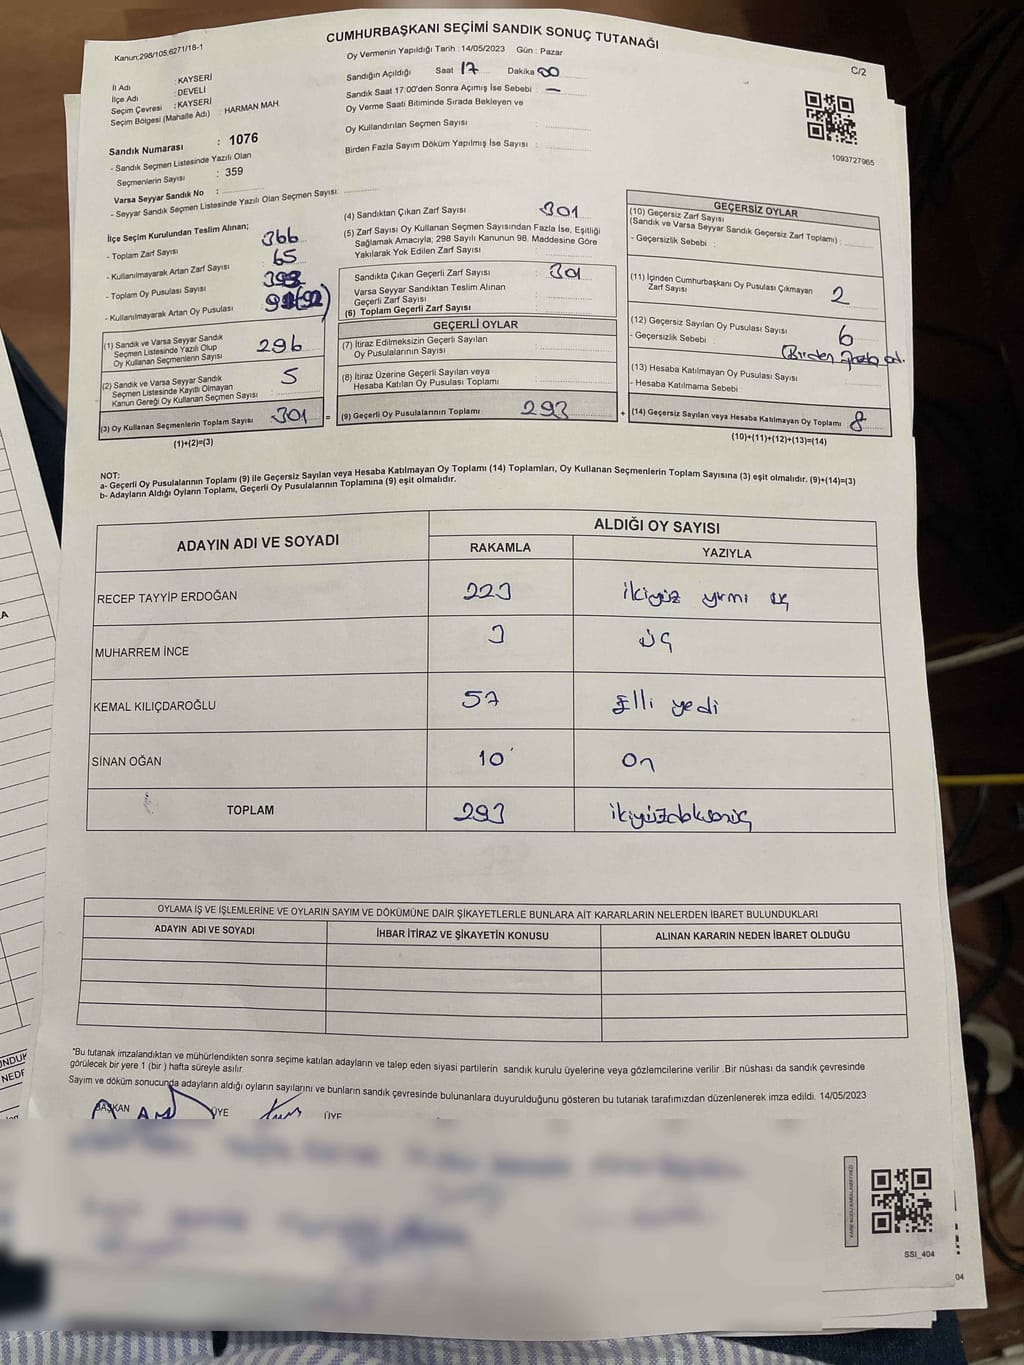 CUMHURBAŞKANI SEÇİMİ SANDIK SONUÇ TUTANAĞI
Kanun:298/105,6271/18-1
C/2
Oy Vermenin Yapıldığı Tarih : 14/05/2023 Gün : Pazar
Sandığın Açıldığı Saat 17 Dakika 00
Sandık Saat 17:00'den Sonra Açımış İse Sebebi : —
Oy Verme Saati Bitiminde Sırada Bekleyen ve
Oy Kullandırılan Seçmen Sayısı :
Birden Fazla Sayım Döküm Yapılmış İse Sayısı :
İl Adı : KAYSERİ
İlçe Adı : DEVELİ
Seçim Çevresi : KAYSERİ
Seçim Bölgesi (Mahalle Adı) : HARMAN MAH.
1093727965
Sandık Numarası : 1076
- Sandık Seçmen Listesinde Yazılı Olan
Seçmenlerin Sayısı : 359
Varsa Seyyar Sandık No :
- Seyyar Sandık Seçmen Listesinde Yazılı Olan Seçmen Sayısı:
İlçe Seçim Kurulundan Teslim Alınan;
- Toplam Zarf Sayısı : 366
- Kullanılmayarak Artan Zarf Sayısı : 65
- Toplam Oy Pusulası Sayısı :
- Kullanılmayarak Artan Oy Pusulası : (92)
(1) Sandık ve Varsa Seyyar Sandık
Seçmen Listesinde Yazılı Olup
Oy Kullanan Seçmenlerin Sayısı : 296
(2) Sandık ve Varsa Seyyar Sandık
Seçmen Listesinde Kayıtlı Olmayan
Kanun Gereği Oy Kullanan Seçmen Sayısı : 5
(3) Oy Kullanan Seçmenlerin Toplam Sayısı : 301 =
(1)+(2)=(3)
(4) Sandıktan Çıkan Zarf Sayısı : 301
(5) Zarf Sayısı Oy Kullanan Seçmen Sayısından Fazla İse, Eşitliği
Sağlamak Amacıyla; 298 Sayılı Kanunun 98. Maddesine Göre
Yakılarak Yok Edilen Zarf Sayısı :
Sandıkta Çıkan Geçerli Zarf Sayısı : 301
Varsa Seyyar Sandıktan Teslim Alınan
Geçerli Zarf Sayısı :
(6) Toplam Geçerli Zarf Sayısı :
GEÇERLİ OYLAR
(7) İtiraz Edilmeksizin Geçerli Sayılan
Oy Pusulalarının Sayısı :
(8) İtiraz Üzerine Geçerli Sayılan veya
Hesaba Katılan Oy Pusulası Toplamı :
(9) Geçerli Oy Pusulalarının Toplamı : 293 +
GEÇERSİZ OYLAR
(10) Geçersiz Zarf Sayısı
(Sandık ve Varsa Seyyar Sandık Geçersiz Zarf Toplamı) :
- Geçersizlik Sebebi :
(11) İçinden Cumhurbaşkanı Oy Pusulası Çıkmayan
Zarf Sayısı : 2
(12) Geçersiz Sayılan Oy Pusulası Sayısı : 6
- Geçersizlik Sebebi : (Birden fazla
(13) Hesaba Katılmayan Oy Pusulası Sayısı :
- Hesaba Katılmama Sebebi :
(14) Geçersiz Sayılan veya Hesaba Katılmayan Oy Toplamı : 8
(10)+(11)+(12)+(13)=(14)
NOT:
a- Geçerli Oy Pusulalarının Toplamı (9) ile Geçersiz Sayılan veya Hesaba Katılmayan Oy Toplamı (14) Toplamları, Oy Kullanan Seçmenlerin Toplam Sayısına (3) eşit olmalıdır. (9)+(14)=(3)
b- Adayların Aldığı Oyların Toplamı, Geçerli Oy Pusulalarının Toplamına (9) eşit olmalıdır.
ADAYIN ADI VE SOYADI ALDIĞI OY SAYISI
RAKAMLA YAZIYLA
RECEP TAYYİP ERDOĞAN 223 ikiyüz yirmi üç
MUHARREM İNCE 3 üç
KEMAL KILIÇDAROĞLU 57 Elli yedi
SİNAN OĞAN 10 on
TOPLAM 293
OYLAMA İŞ VE İŞLEMLERİNE VE OYLARIN SAYIM VE DÖKÜMÜNE DAİR ŞİKAYETLERLE BUNLARA AİT KARARLARIN NELERDEN İBARET BULUNDUKLARI
ADAYIN ADI VE SOYADI İHBAR İTİRAZ VE ŞİKAYETİN KONUSU ALINAN KARARIN NEDEN İBARET OLDUĞU
*Bu tutanak imzalandıktan ve mühürlendikten sonra seçime katılan adayların ve talep eden siyasi partilerin sandık kurulu üyelerine veya gözlemcilerine verilir .Bir nüshası da sandık çevresinde
görülecek bir yere 1 (bir ) hafta süreyle asılır.
Sayım ve döküm sonucunda adayların aldığı oyların sayılarını ve bunların sandık çevresinde bulunanlara duyurulduğunu gösteren bu tutanak tarafımızdan düzenlenerek imza edildi. 14/05/2023
BAŞKAN ÜYE ÜYE
SSI_404
04